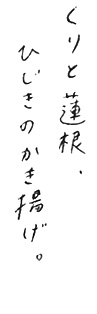 くりと蓮根、
ひじきのかき揚げ。